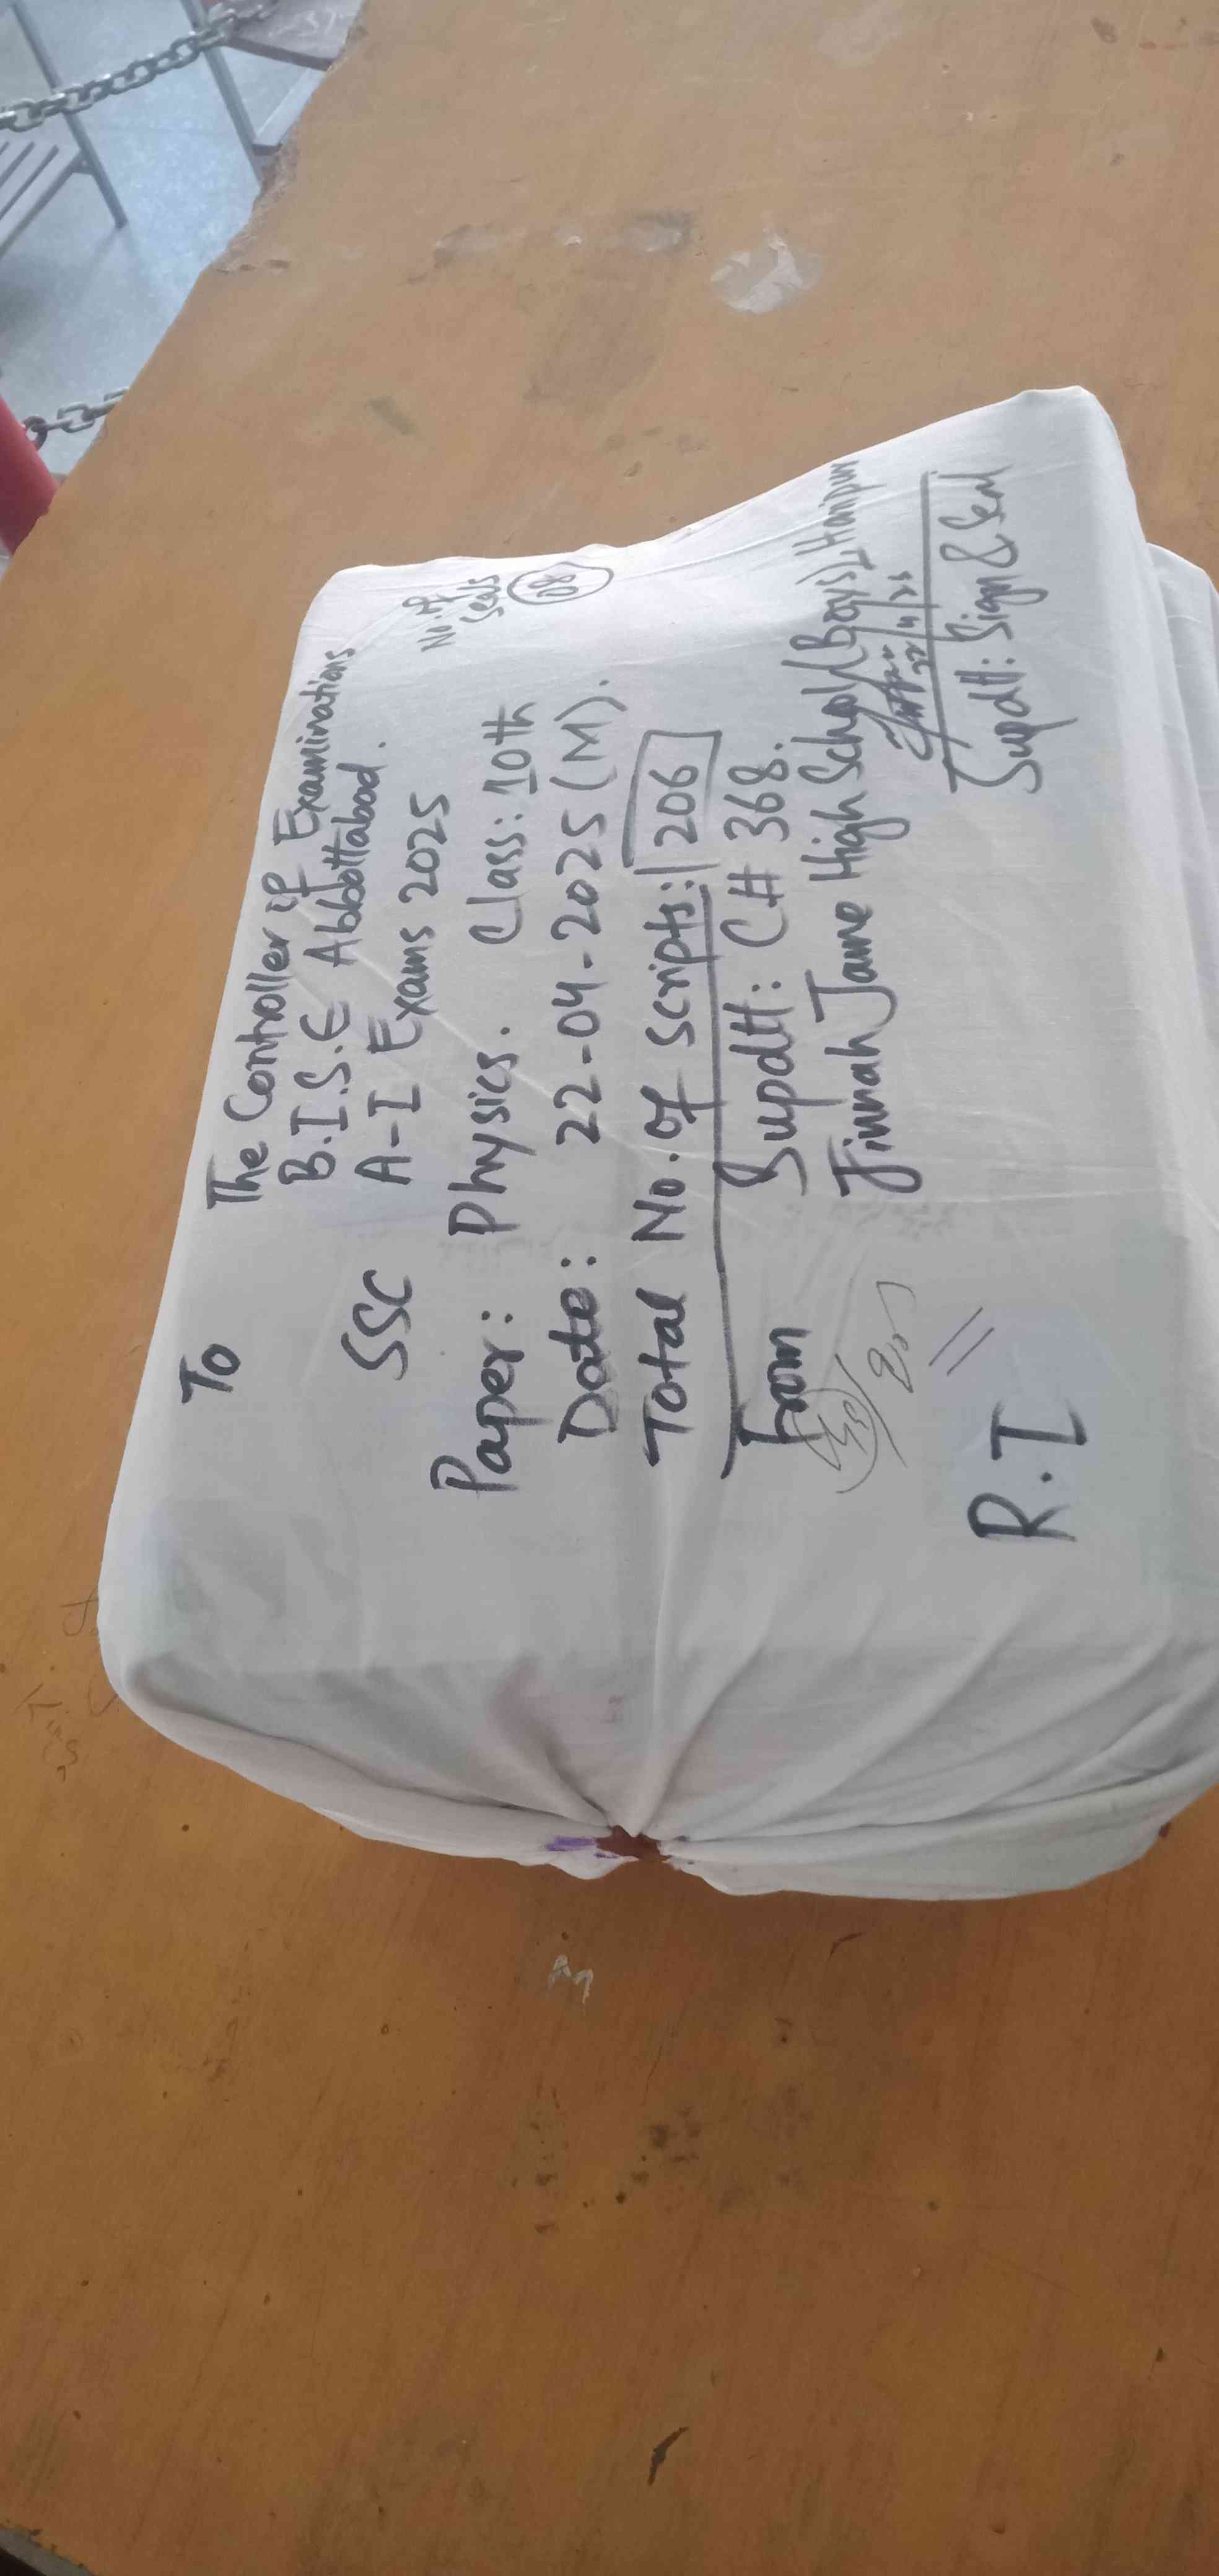 To
The Controller of Examinations
B.I.S.E Abbottabad.
SSC A-I Exams 2025
No. of
Seals
08
Paper: Physics. Class: 10th
Date: 22-04-2025 (M).
Total No. of scripts: 206
From Supdtt: C# 368.
Jinnah Jame High School (Boys), Haripur
22/4/25
Supdtt: Sign & Seal
R.I